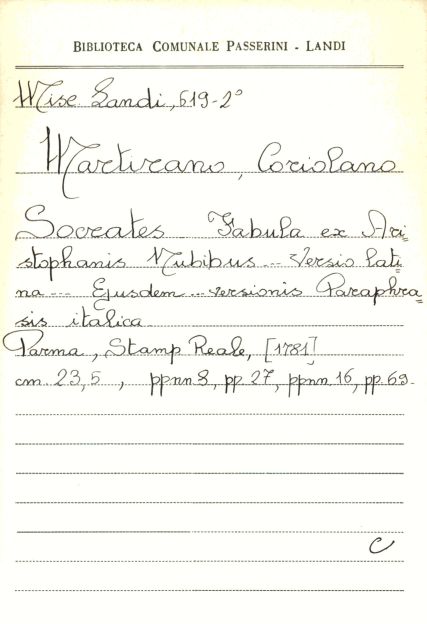 BIBLIOTECA COMUNALE PASSERINI - LANDI
Misc. Landi, 619-2°
Martirano, Coriolano
Socrates Fabula ex Ari=
stophanis Nubibus... Versio lati=
na... Ejusdem... versionis Paraphra=
sis italica
Parma, Stamp Reale, [1781]
cm 23,5, ppnn 8, pp. 27, ppnn. 16, pp. 69.
C